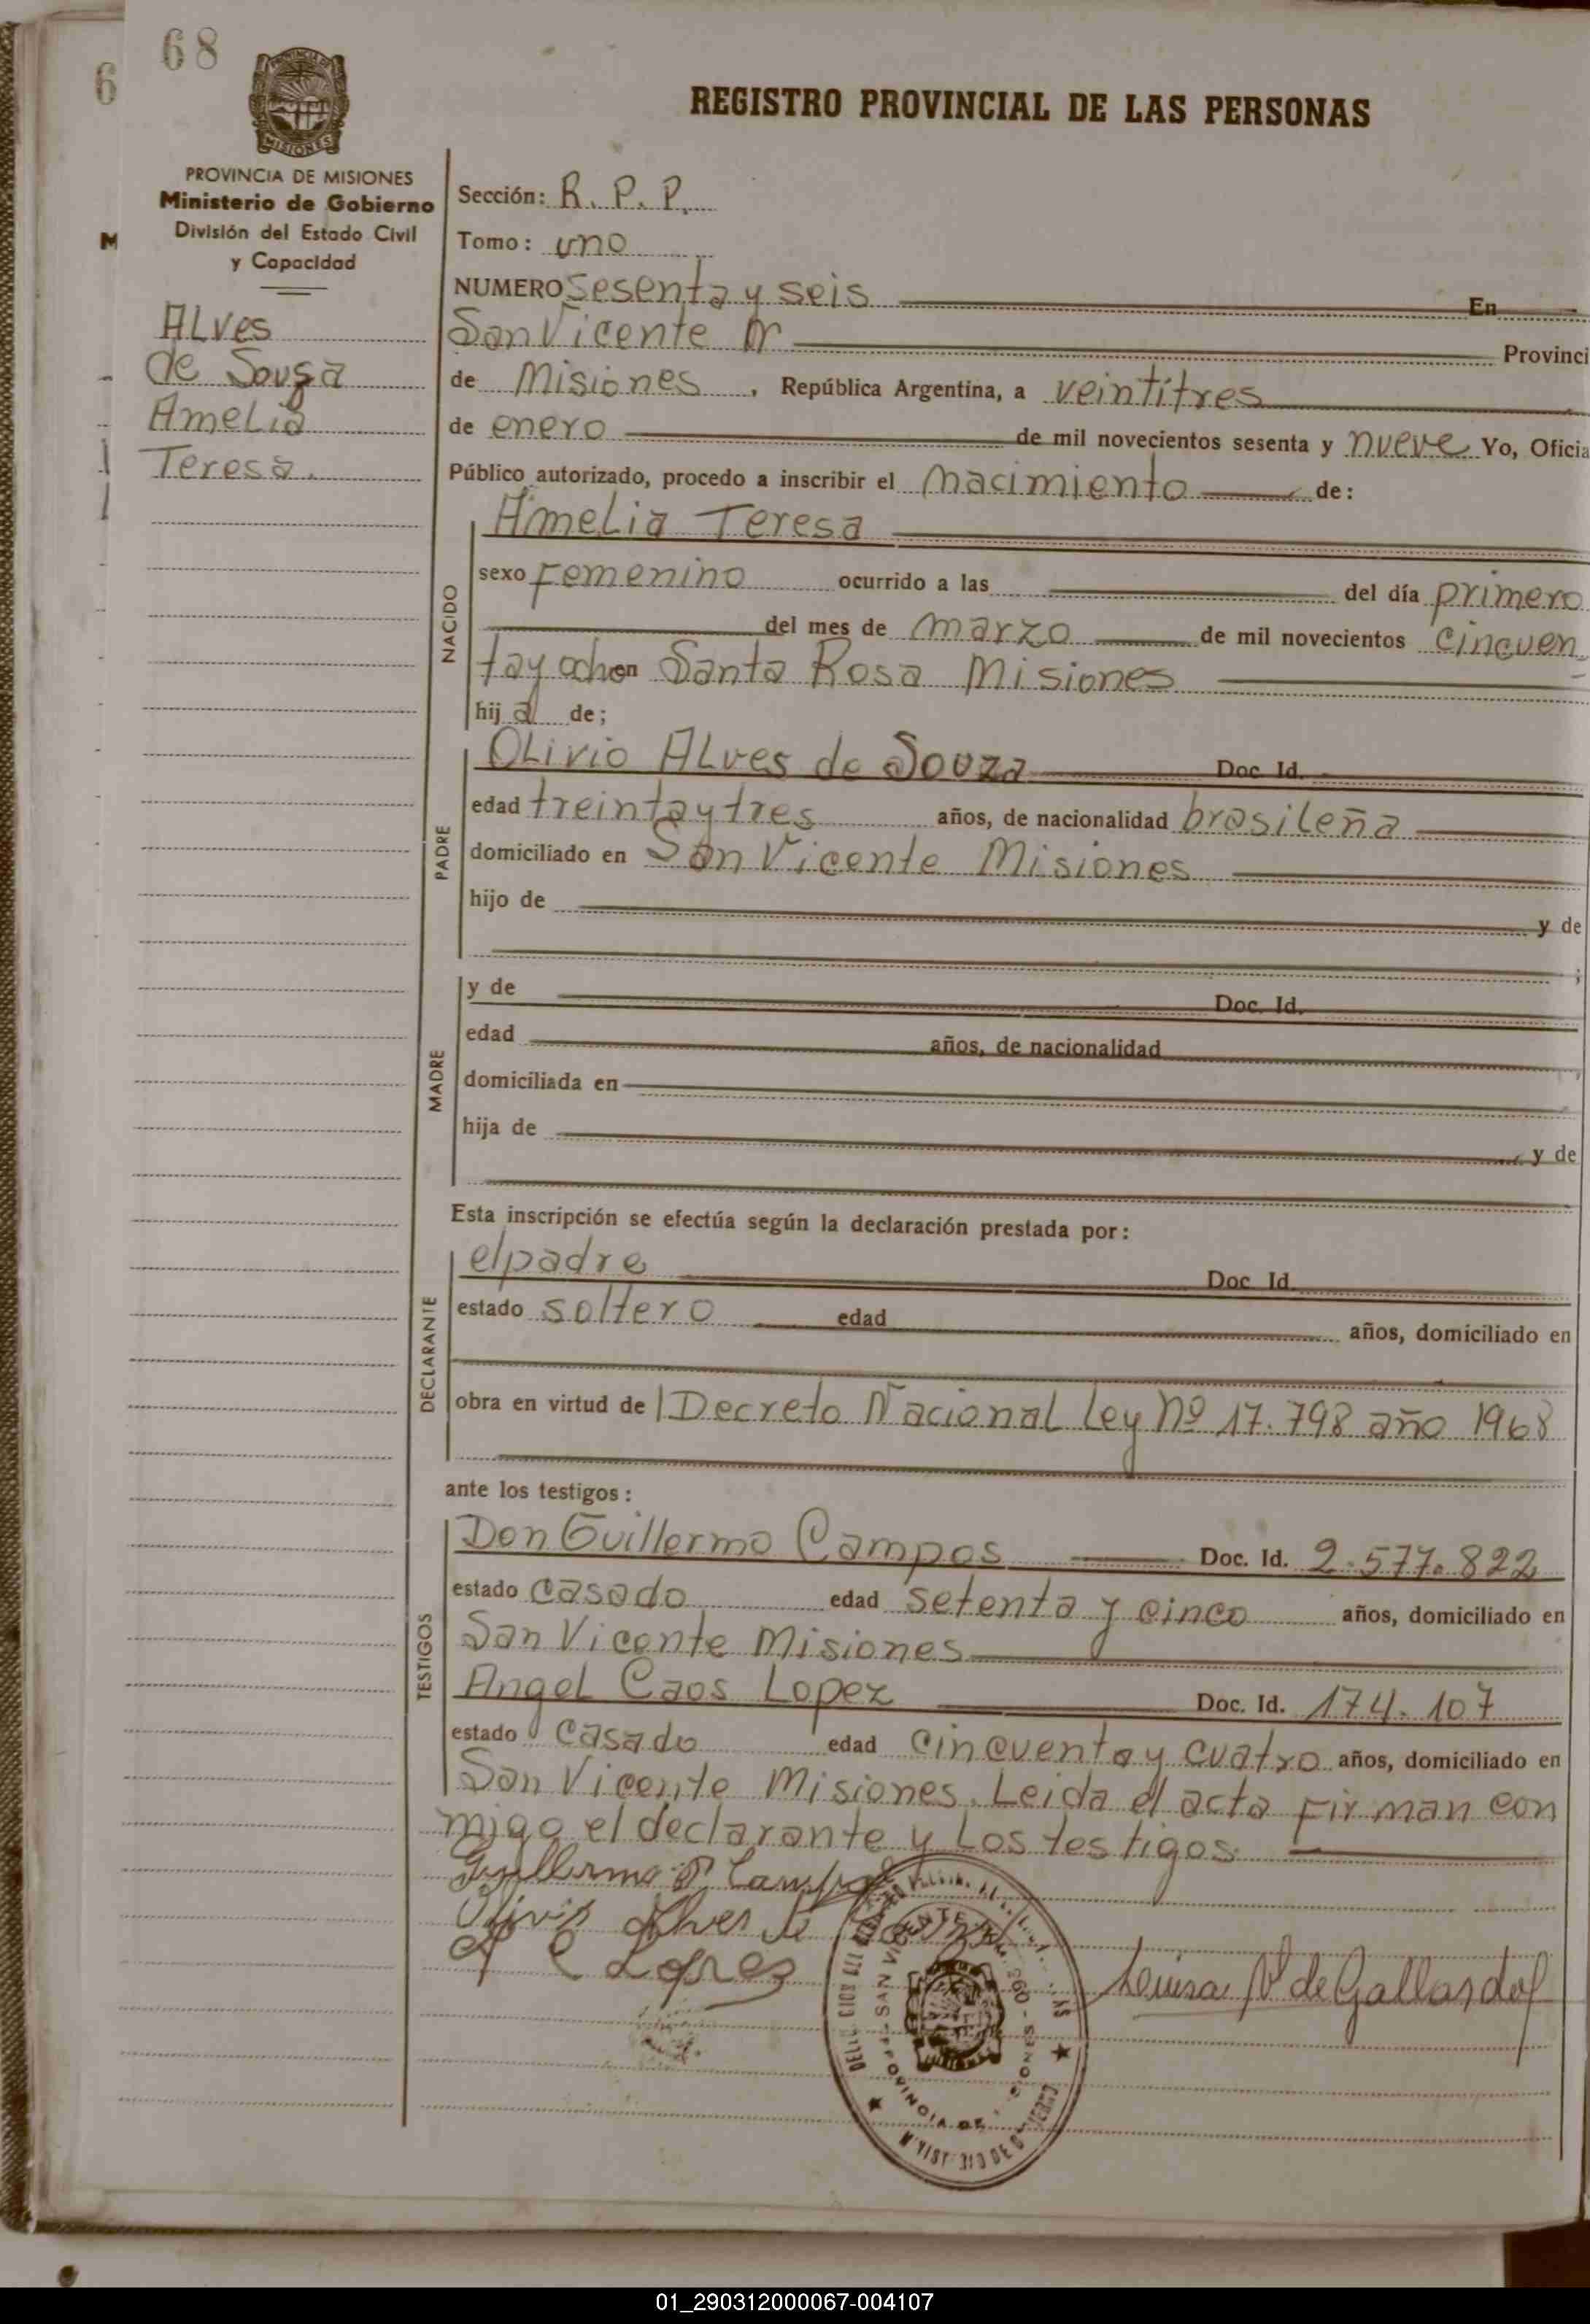 68
6
REGISTRO PROVINCIAL DE LAS PERSONAS
MISIONES
PROVINCIA DE MISIONES
Ministerio de Gobierno
División del Estado Civil
y Capacidad
M
ALves
de Souza
Amelia
Teresa.
Sección: R. P. P.
Tomo: uno
NUMERO Sesenta y seis En
San Vicente Provinci
de Misiones, República Argentina, a veintitres
de enero de mil novecientos sesenta y nueve Yo, Oficia
Público autorizado, procedo a inscribir el nacimiento de:
NACIDO
Amelia Teresa
sexo Femenino ocurrido a las del día primero
del mes de marzo de mil novecientos cincuen
tayocho en Santa Rosa Misiones
hija de;
PADRE
OLivio ALves de Souza Doc Id.
edad treintaytres años, de nacionalidad brasileña
domiciliado en San Vicente Misiones
hijo de y de
;
MADRE
y de Doc. Id.
edad años, de nacionalidad
domiciliada en
hija de y de
Esta inscripción se efectúa según la declaración prestada por:
DECLARANTE
el padre Doc Id
estado soltero edad años, domiciliado en
obra en virtud del Decreto Nacional Ley Nº 17.798 año 1968
ante los testigos:
TESTIGOS
Don Guillermo Campos Doc. Id. 2.577.822
estado casado edad setenta y cinco años, domiciliado en
San Vicente Misiones
Angel Caos Lopez Doc. Id. 174.107
estado casado edad cincuenta y cuatro años, domiciliado en
San Vicente Misiones. Leida el acta Firman con
migo el declarante y Los testigos.
Olivio Alves de
A C Lopez
Luisa de Gallardo
01_290312000067-004107